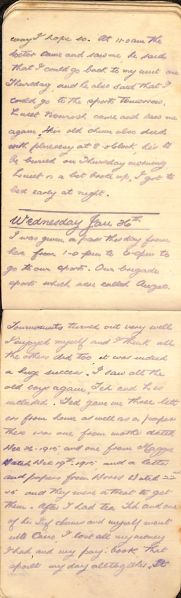 way I hope so. At 11-0 am the
doctor came and saw me he said
that I could go back to my unit on
Thursday and he also said that I
could go to the sports tomorrow.
came and saw me
again. His old chum also died
with pleurisy at 8 o'clock, he is to
be buried on Thursday morning
is a bit broke up, I got to
bed early at night.
Wednesday Jan 26th
I was given a pass this day from
here from 1-0 pm to pm to
go to our sports. Our brigade
sports which were called
Tournments turned out very well
I enjoyed myself and I think all
the others did too it was indeed
a huge success. I saw all the
old boys again, Ted and
included. Ted gave me three lett
ers from home as well as a paper
there was one from mother dated
Dec 1915 and one from Maggie
dated Dec 19th 1915 and a letter
and papers from dated
15 and they were a treat to get
them. After I had tea Ted and one
of his chums and myself went
into Cairo. I lost all my money
I had and my pay-book that
spoilt my day altogether.